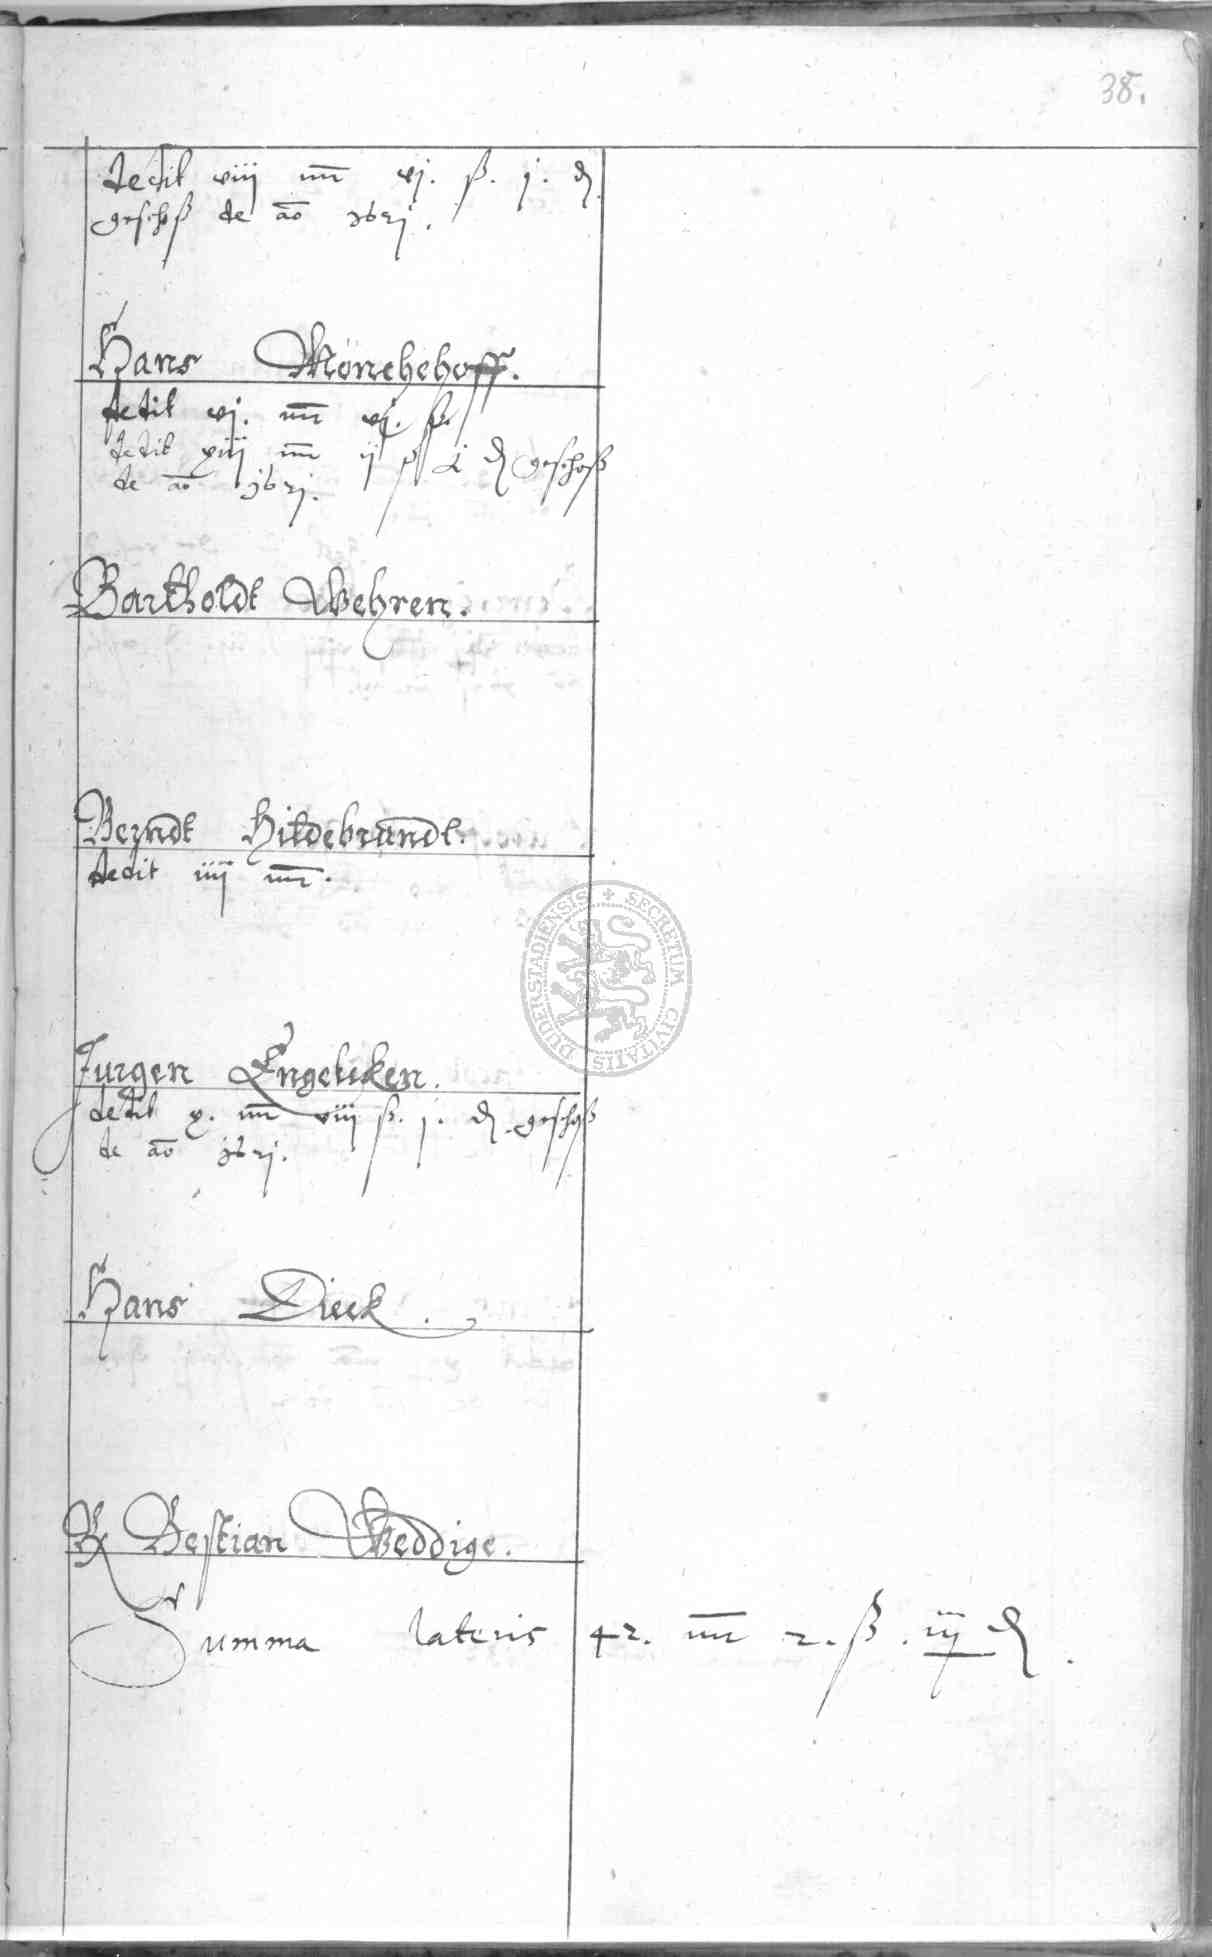 38.
dedit viij mr vj. ß. j. ₰
geschoß de ao 1621.
Hans Mönchehoff.
dedit vj. mr vj. ß.
dedit xiij mr ij ß ₰ geschoß
de ao 1621.
Bartholdt Wehren.
Berndt Hildebrandt.
dedit iiij mr.
Jurgen Engelcken.
dedit x. mr viij ß. j. ₰ geschoß
de ao 1621.
Hans Dieck.
Bestian Weddige.
Summa lateris 42. mr 2. ß. iij ₰.
SECRETUM CIVITATIS DUDERSTADIENSIS